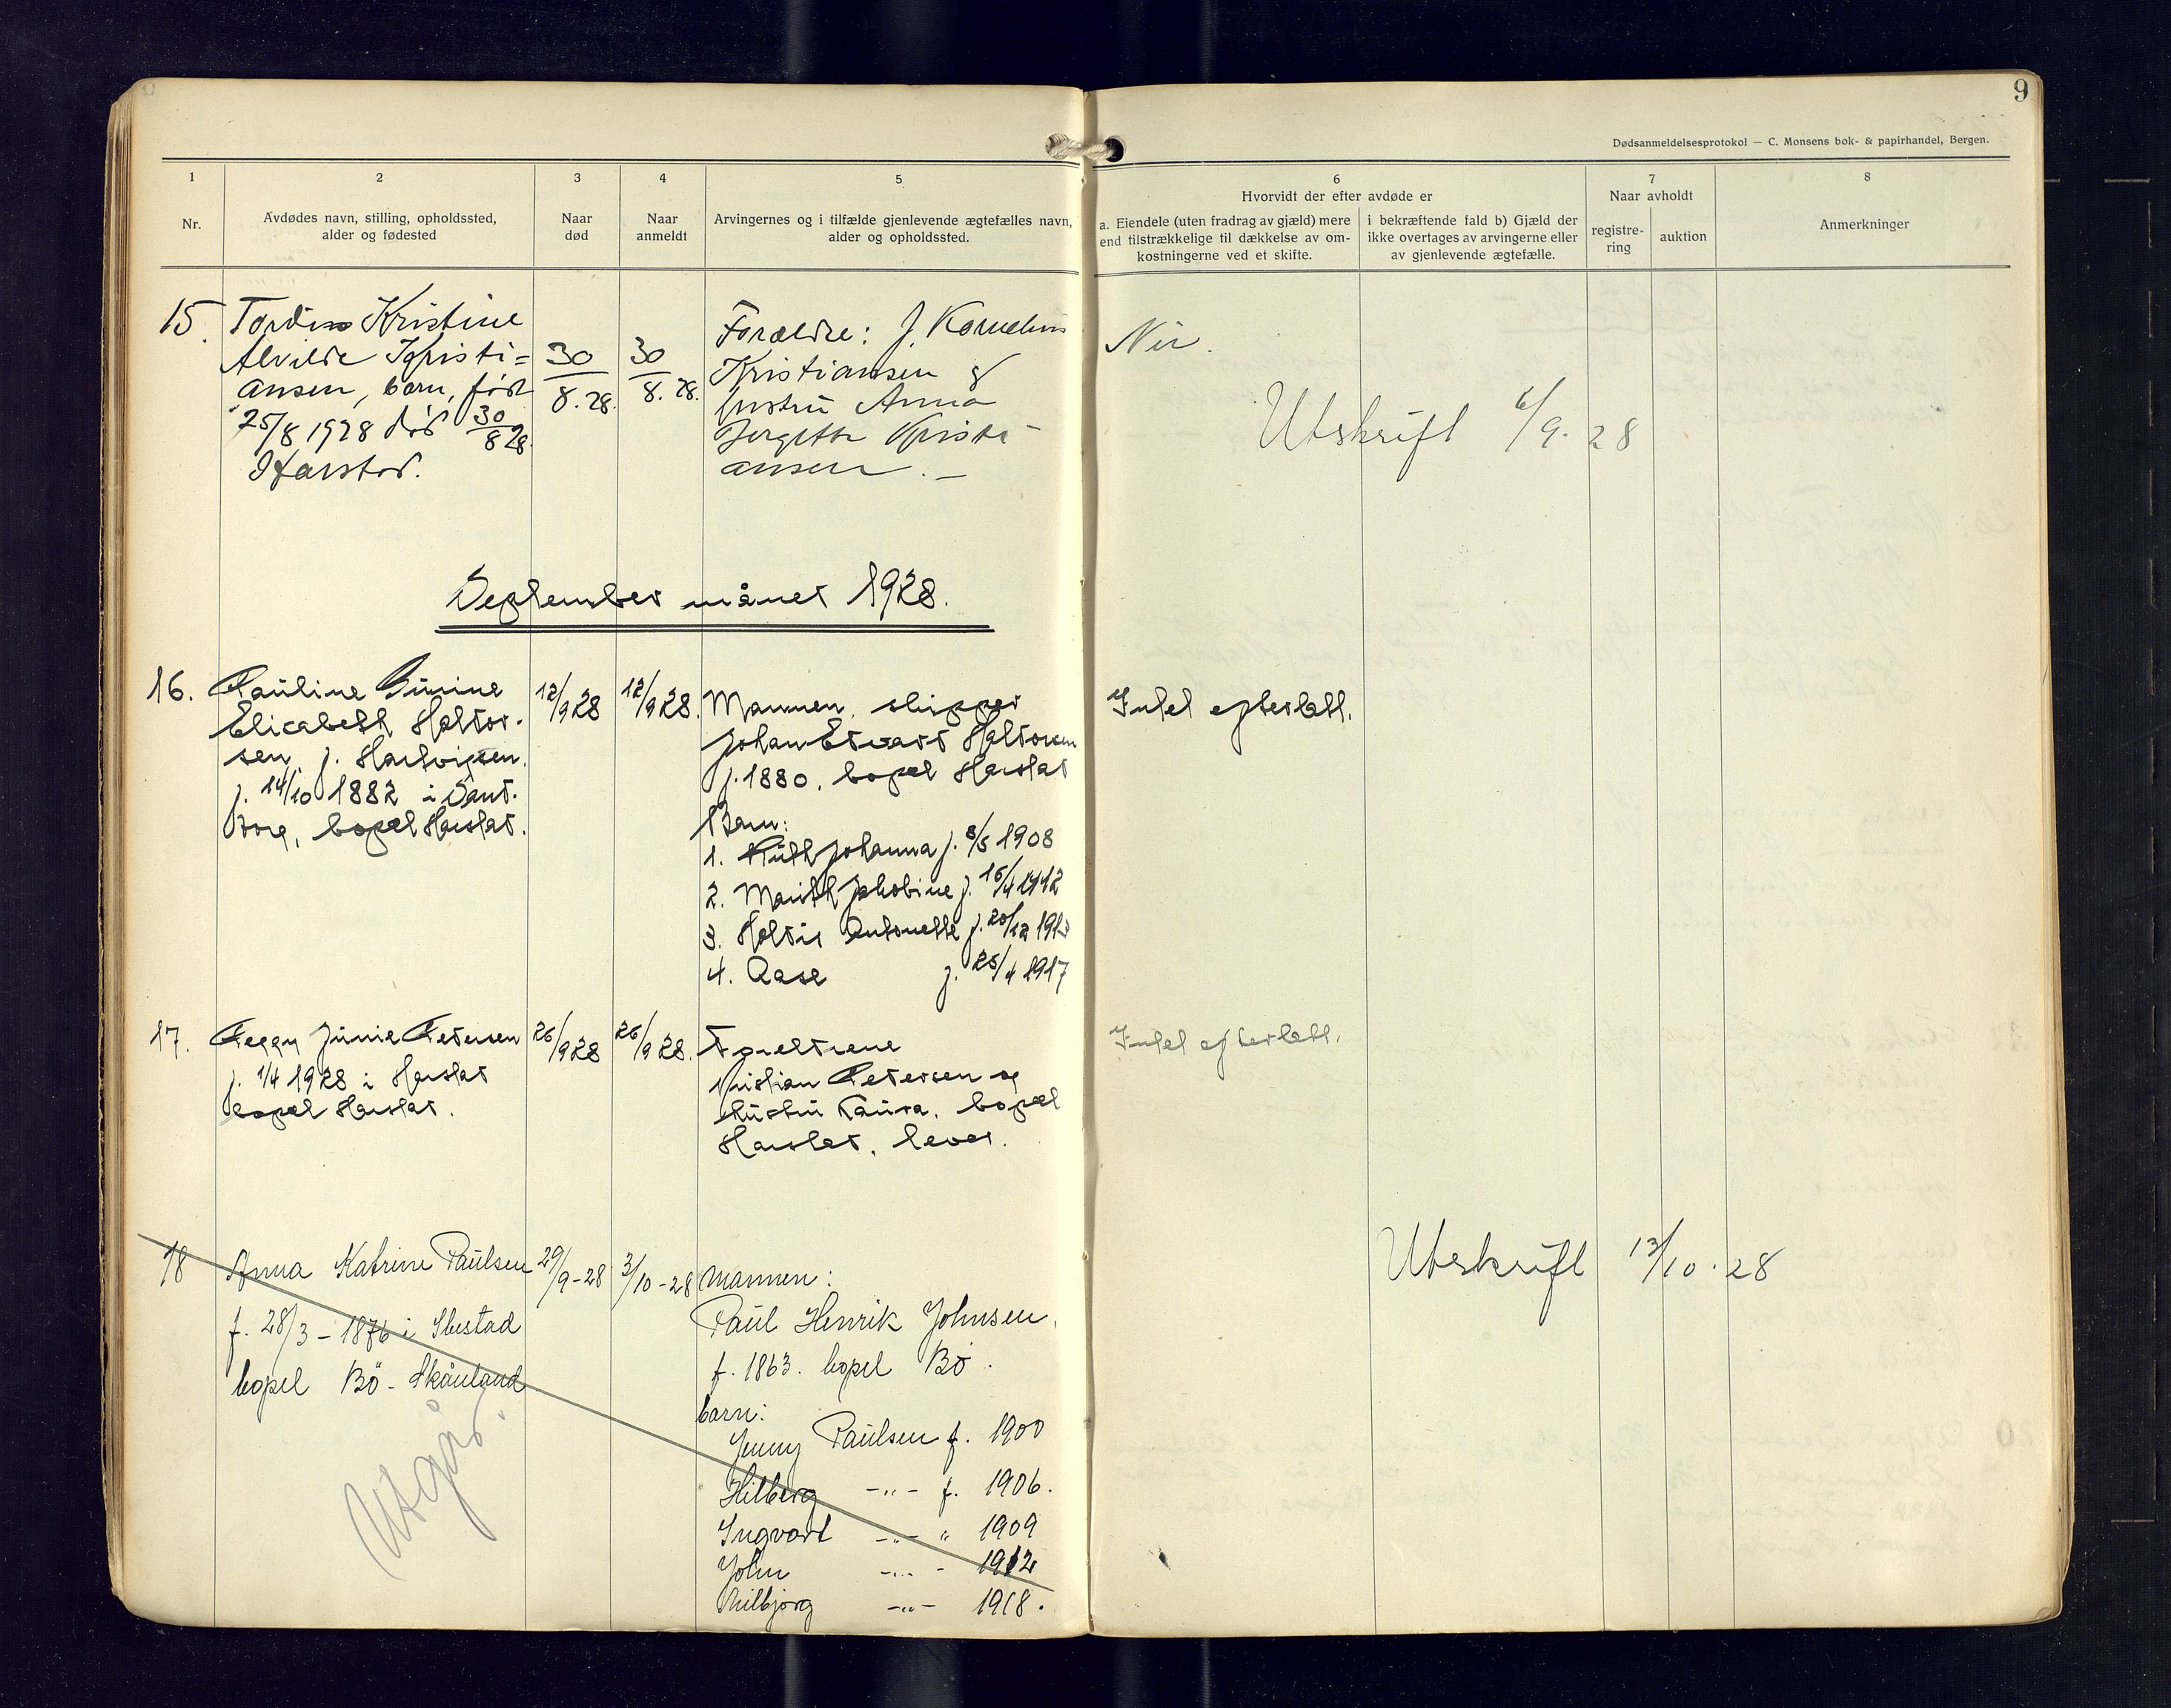 9
Dødsanmeldelsesprotokol — C. Monsens bok- & papirhandel, Bergen.
1
Nr.
2
Avdødes navn, stilling, opholdssted,
alder og fødested
3
Naar
død
4
Naar
anmeldt
5
Arvingernes og i tilfælde gjenlevende ægtefælles navn,
alder og opholdssted.
6
Hvorvidt der efter avdøde er
a. Eiendele (uten fradrag av gjæld) mere
end tilstrækkelige til dækkelse av om-
kostningerne ved et skifte.
i bekræftende fald b) Gjæld der
ikke overtages av arvingerne eller
av gjenlevende ægtefælle.
7
Naar avholdt
registre-
ring
auktion
8
Anmerkninger
15.
Tordis Kristine
Alvilde Kristi=
ansen, barn, født
25/8 1928 død 30/8 28.
Harstad.
30/8. 28.
30/8. 28.
Forældre: J. Kornelius
Kristiansen &
hustru Anna
Bergitte Kristi-
ansen. —
Utskrift 6/9. 28
September månet 1928.
16.
Pauline Gurine
Elisabeth Haldor-
sen, f. Hartvigsen.
f. 14/10 1882 i Sand-
torg, bopæl Harstad.
12/9 28
12/9 28.
Mannen, skipper
Johan Edvard Haldorsen
f. 1880, bopæl Harstad
Barn:
1. Ruth Johanna f. 8/5 1908
2. Marith Jakobine f. 15/4 1912
3. Haldis Antonette f. 20/12 191
4. Aase f. 25/4 1917
Intet efterlatt.
17.
Peggy Junie Petersen
f. 1/4 1928 i Harstad
bopæl Harstad.
26/9 28
26/9 28.
Foreldrene
Kristian Petersen og
hustru Laura, bopæl
Harstad, lever.
Intet efterlatt.
18
Anna Katrine Paulsen
f. 28/3 - 1876 i Ibestad
bopel Bö - Skånland
Utgår.
29/9 - 28
3/10 - 28
Mannen:
Paul Henrik Johnsen,
f. 1863. bopel Bö.
barn:
Jenny Paulsen f. 1900
Hilberg -"- f. 1906.
Ingvart -"- " 1909
John -"- - 1912
Milbjørg -"- 1918.
Utskrift 13/10. 28